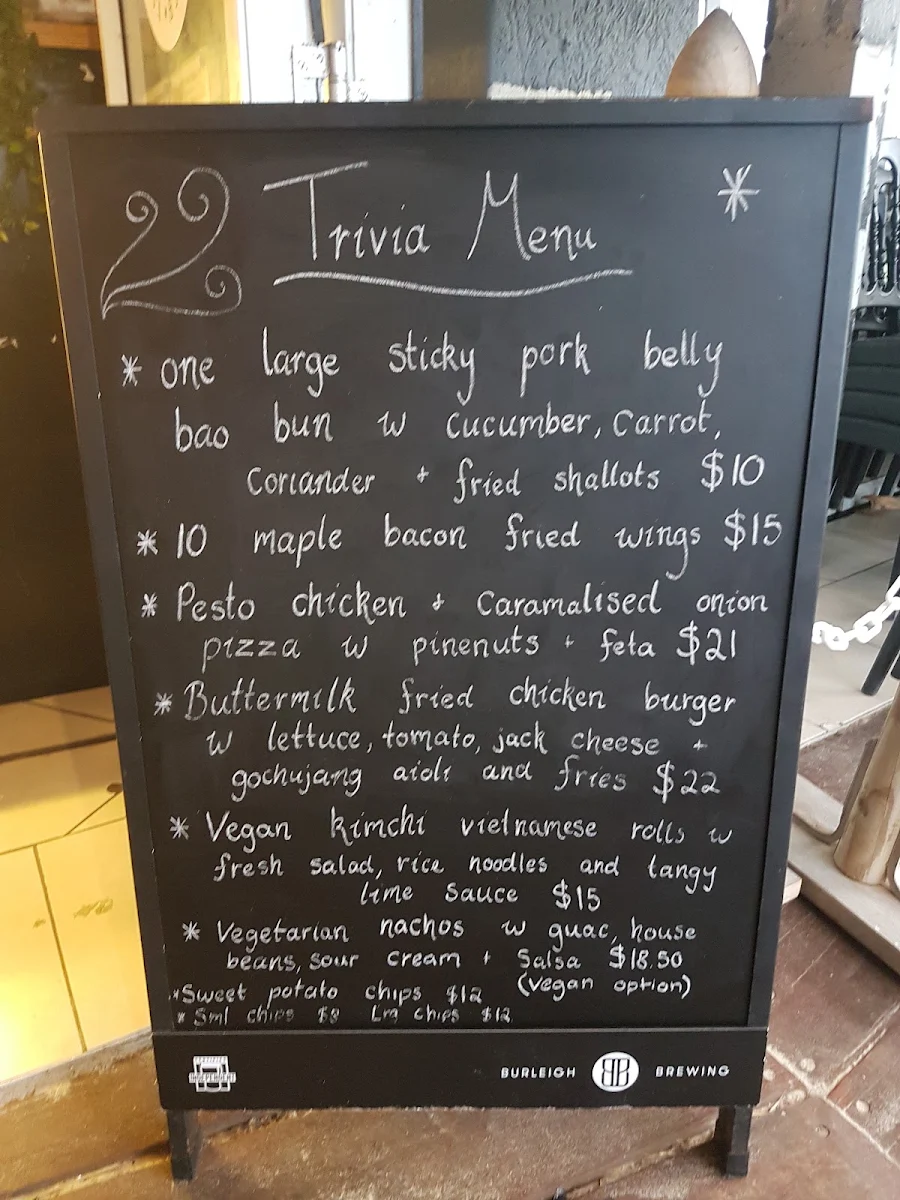 Trivia Menu *
* one large sticky pork belly
bao bun w cucumber, carrot,
coriander + fried shallots $10
* 10 maple bacon fried wings $15
* Pesto chicken + Caramalised onion
pizza w pinenuts + feta $21
* Buttermilk fried chicken burger
w lettuce, tomato, jack cheese +
gochujang aioli and fries $22
* Vegan kimchi vietnamese rolls w
fresh salad, rice noodles and tangy
lime sauce $15
* Vegetarian nachos w guac, house
beans, sour cream + Salsa $18.50
(vegan option)
* Sweet potato chips $12
* Sml chips $8 Lrg chips $12
INDEPENDENT
BURLEIGH BB BREWING